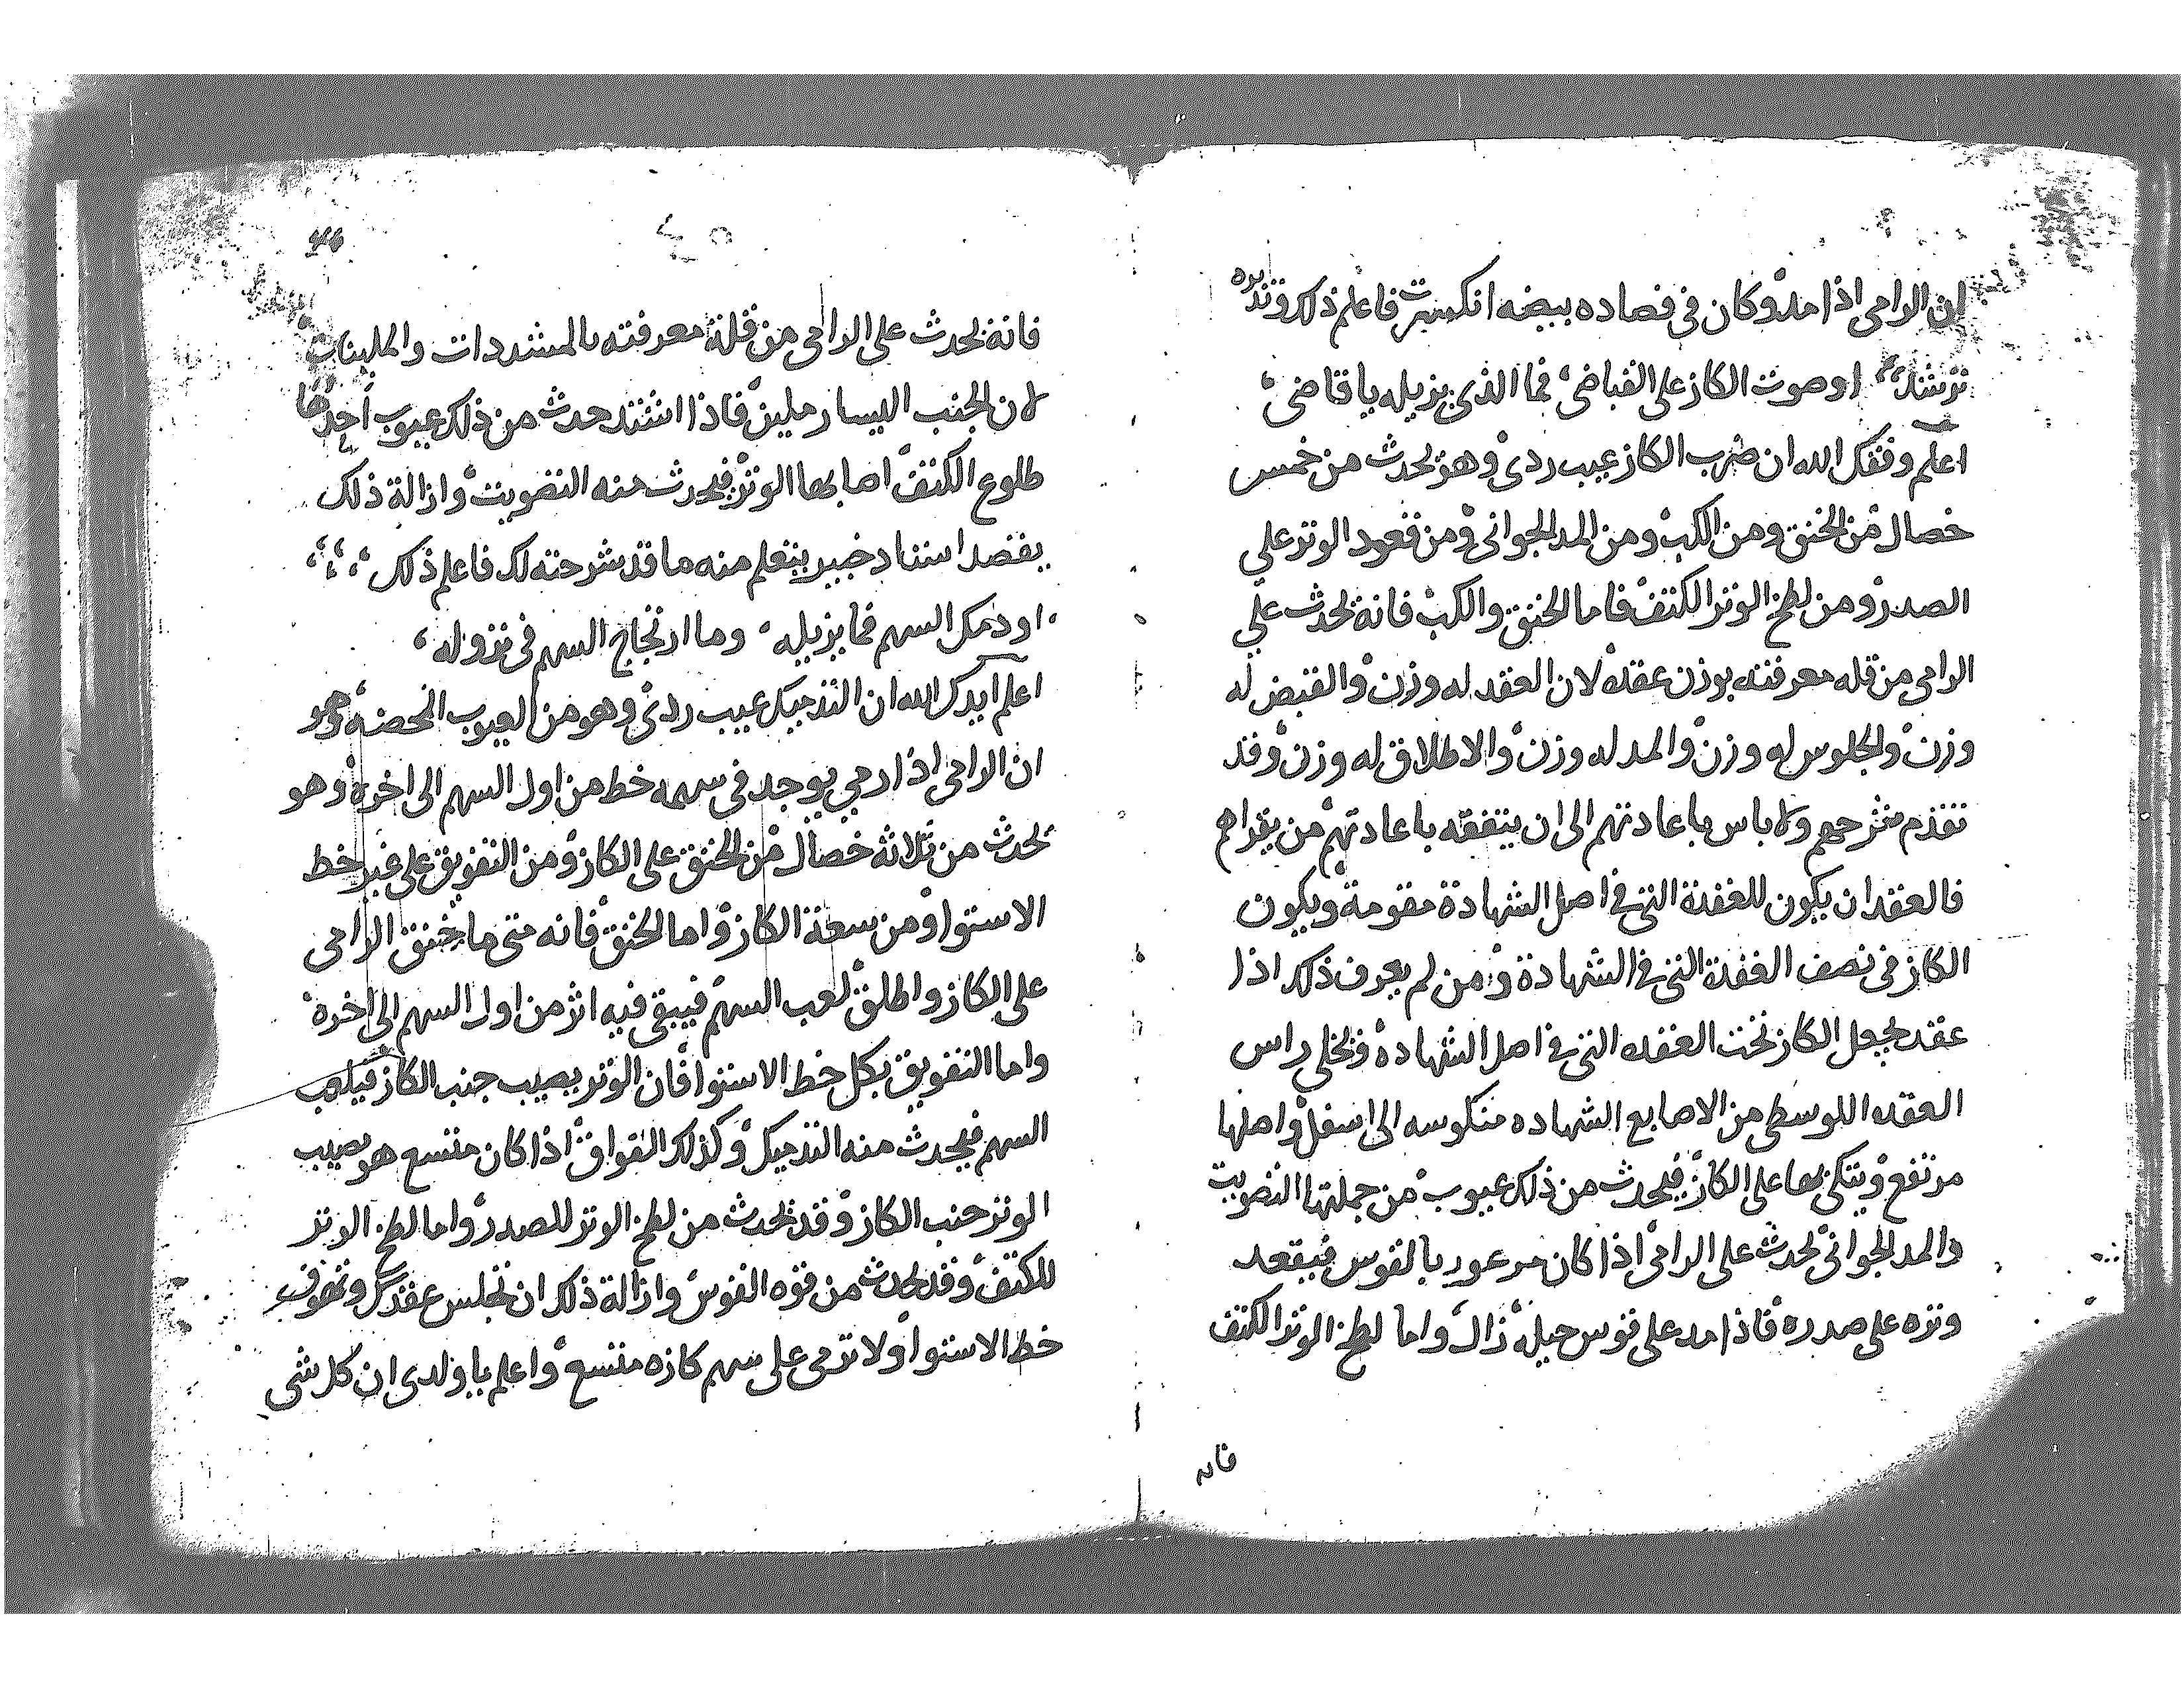 ان الرامى اذا مد وكان فى قصاده بيضه انكسرت فاعلم ذلك وتدبره
ترشد اوصوت الكاز على القباضى فما الذى يزيله يا قاضى
اعلم وفقك الله ان ضرب الكاز عيب ردى وهو يحدث من خمس
خصال من الخنق ومن الكب ومن المد الجوانى ومن قعود الوتر على
الصدر ومن لطخ الوتر الكتف فاما الخنق والكب فانه يحدث على
الرامى من قله معرفته بوزن عقده لان العقد له وزن والقبض له
وزن والجلوس له وزن والمد له وزن والاطلاق له وزن وقد
تقدم شرحهم ولا باس باعادتهم الى ان يتفقه باعادتهم من يقراهم
فالعقد ان يكون للعقدة التى فى اصل الشهادة مقومة ويكون
الكاز فى نصف العقدة التى فى الشهادة ومن لم يعرف ذلك اذا
عقد يجعل الكاز تحت العقده التى فى اصل الشهاده ويخلى راس
العقده اللوسطى من الاصابع الشهاده منكوسه الى اسفل واصلها
مرتفع ويتكى بها على الكاز فيحدث من ذلك عيوب من جملتها التصويت
والمد الجوانى يحدث على الرامى اذا كان مرعور بالقوس فيقعد
وتره على صدره فاذا مد على قوس حيله زال واما لطخ الوتر الكتف
فانه
فانه يحدث على الرامى من قلة معرفته بالمشددات والملينات
لان الجنب اليسار ملين فاذا اشتد حدث من ذلك عيوب احدها
طلوع الكتف اصابها الوتر فيحدث منه التصويت وازالة ذلك
يقصد استاد خبير يتعلم منه ما قد شرحته لك فاعلم ذلك
او دمك السهم فما يزيله وما ارتجاج السهم فى نزوله
اعلم ايدك الله ان التدميك عيب ردى وهو من العيوب الخصه وهو
ان الرامى اذا رمى يوجد فى سهمه خط من اول السهم الى اخره وهو
يحدث من ثلاثه خصال من الخنق على الكاز ومن التفويق على غير خط
الاستوا ومن سعة الكاز واما الخنق فانه متى ما خنق الرامى
على الكاز واطلق لعب السهم فيبقى فيه اثر من اول السهم الى اخره
واما التفويق بكل خط الاستوا فان الوتر يصيب جنب الكاز فيلعب
السهم فيحدث منه التدميك وكذلك القواق اذا كان متسع هو يصيب
الوتر جنب الكاز وقد يحدث من لطخ الوتر للصدر واما لطخ الوتر
للكتف وقد يحدث من قوه القوس وازالة ذلك ان تجلس عقدك وتفوق
خط الاستوا ولا ترمى على سهم كازه متسع واعلم يا ولدى ان كل شى